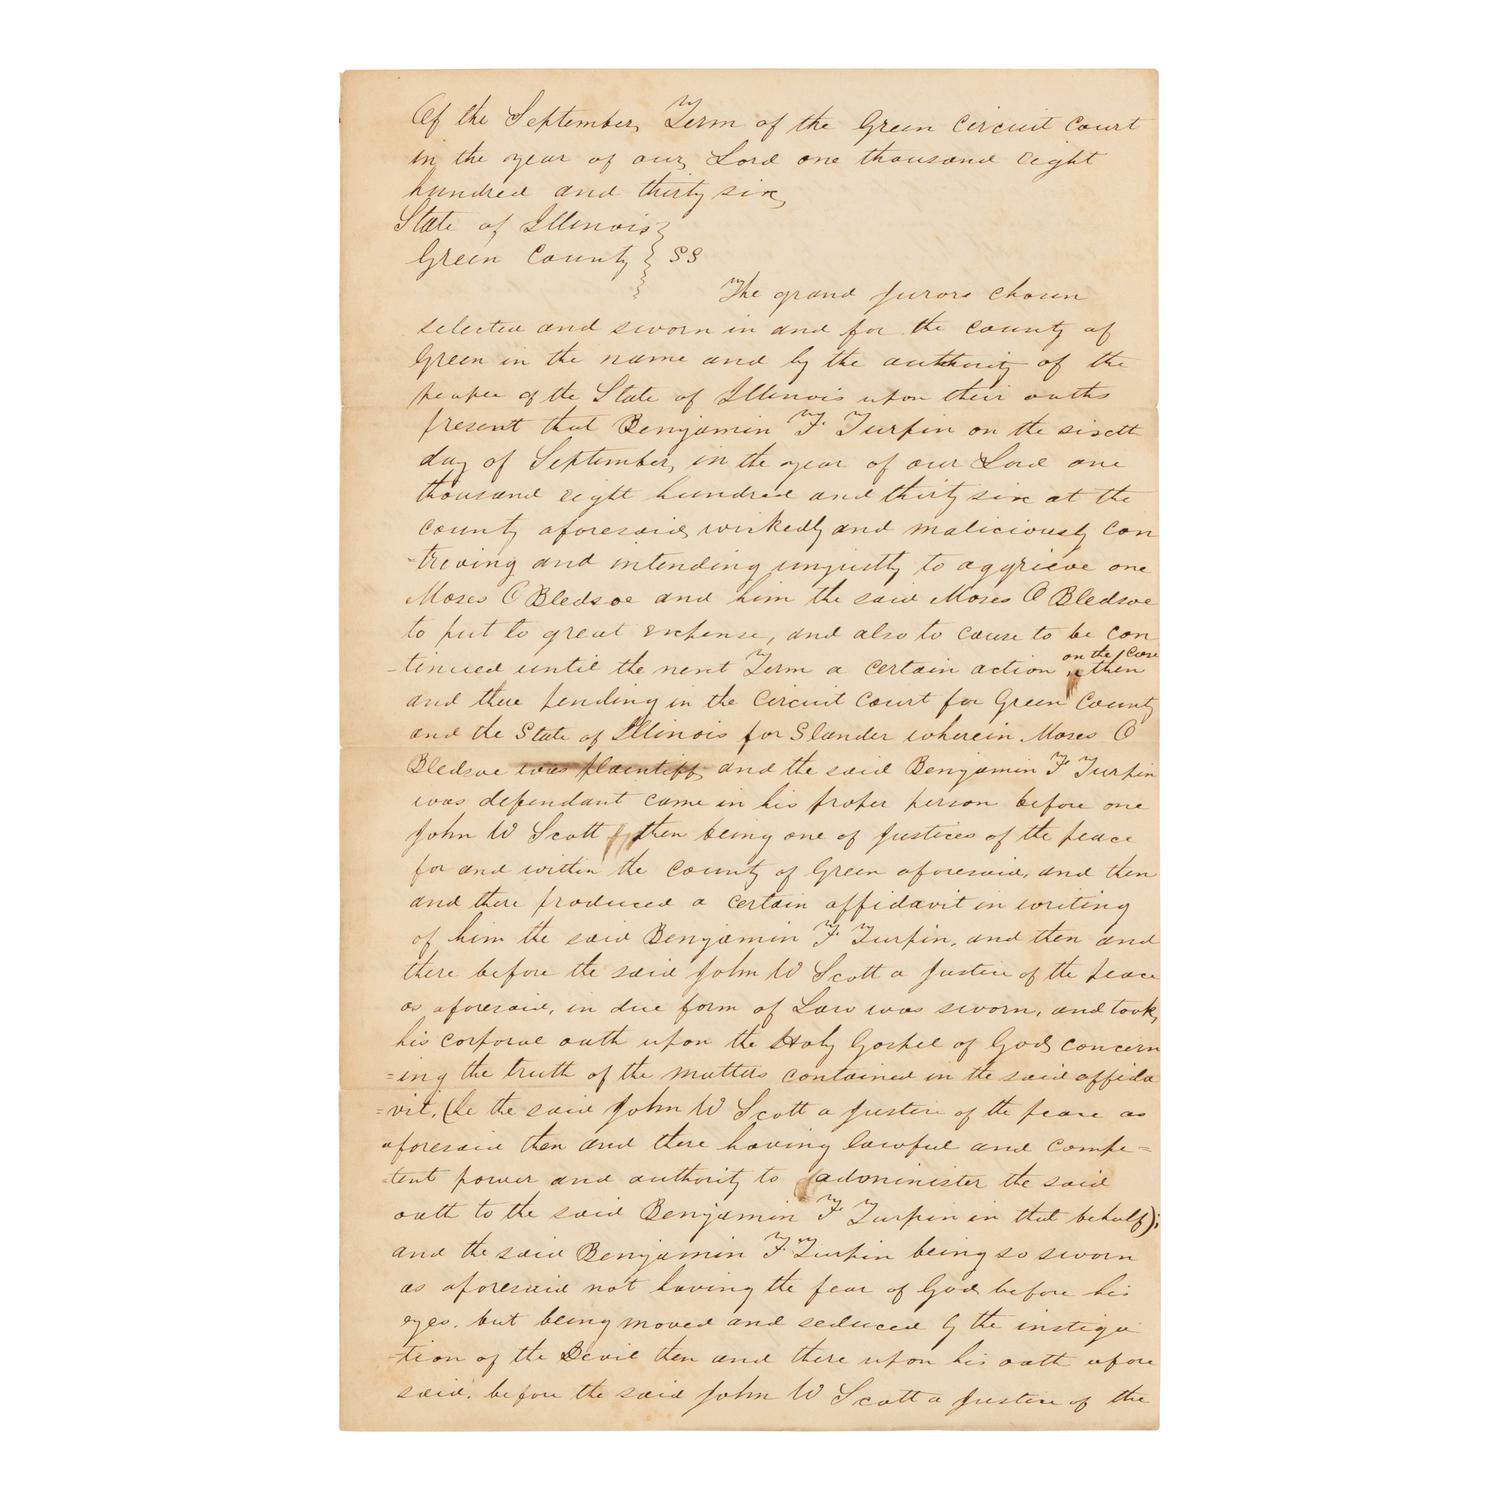 Of the September Term of the Green Circuit Court
in the year of our Lord one thousand eight
hundred and thirty six
State of Illinois
Green County } SS
The grand jurors chosen
selected and sworn in and for the county of
Green in the name and by the authority of the
people of the State of Illinois upon their oaths
present that Benjamin F. Turpin on the sixth
day of September, in the year of our Lord one
thousand eight hundred and thirty six at the
county aforesaid, wickedly and maliciously con
-triving and intending unjustly to aggrieve one
Moses O Bledsoe and him the said Moses O Bledsoe
to put to great expense, and also to cause to be con
-tinued until the next Term a certain action on the case then
and there pending in the Circuit Court for Green County
and the State of Illinois for Slander wherein Moses O
Bledsoe was plaintiff and the said Benjamin F Turpin
was defendant came in his proper person before one
John W Scott then being one of Justices of the peace
for and within the County of Green aforesaid, and then
and there produced a certain affidavit in writing
of him the said Benjamin F. Turpin, and then and
there before the said John W Scott a Justice of the peace
as aforesaid, in due form of Law was sworn, and took,
his corporal oath upon the Holy Gospel of God, concern
=ing the truth of the matters contained in the said affida
=vit, (he the said John W Scott a Justice of the peace as
aforesaid then and there having lawful and compe=
-tent power and authority to administer the said
oath to the said Benjamin F. Turpin in that behalf);
and the said Benjamin F. Turpin being so sworn
as aforesaid not having the fear of God before his
eyes. but being moved and seduced by the instiga
-tion of the Devil then and there upon his oath afore
said, before the said John W Scott a Justice of the